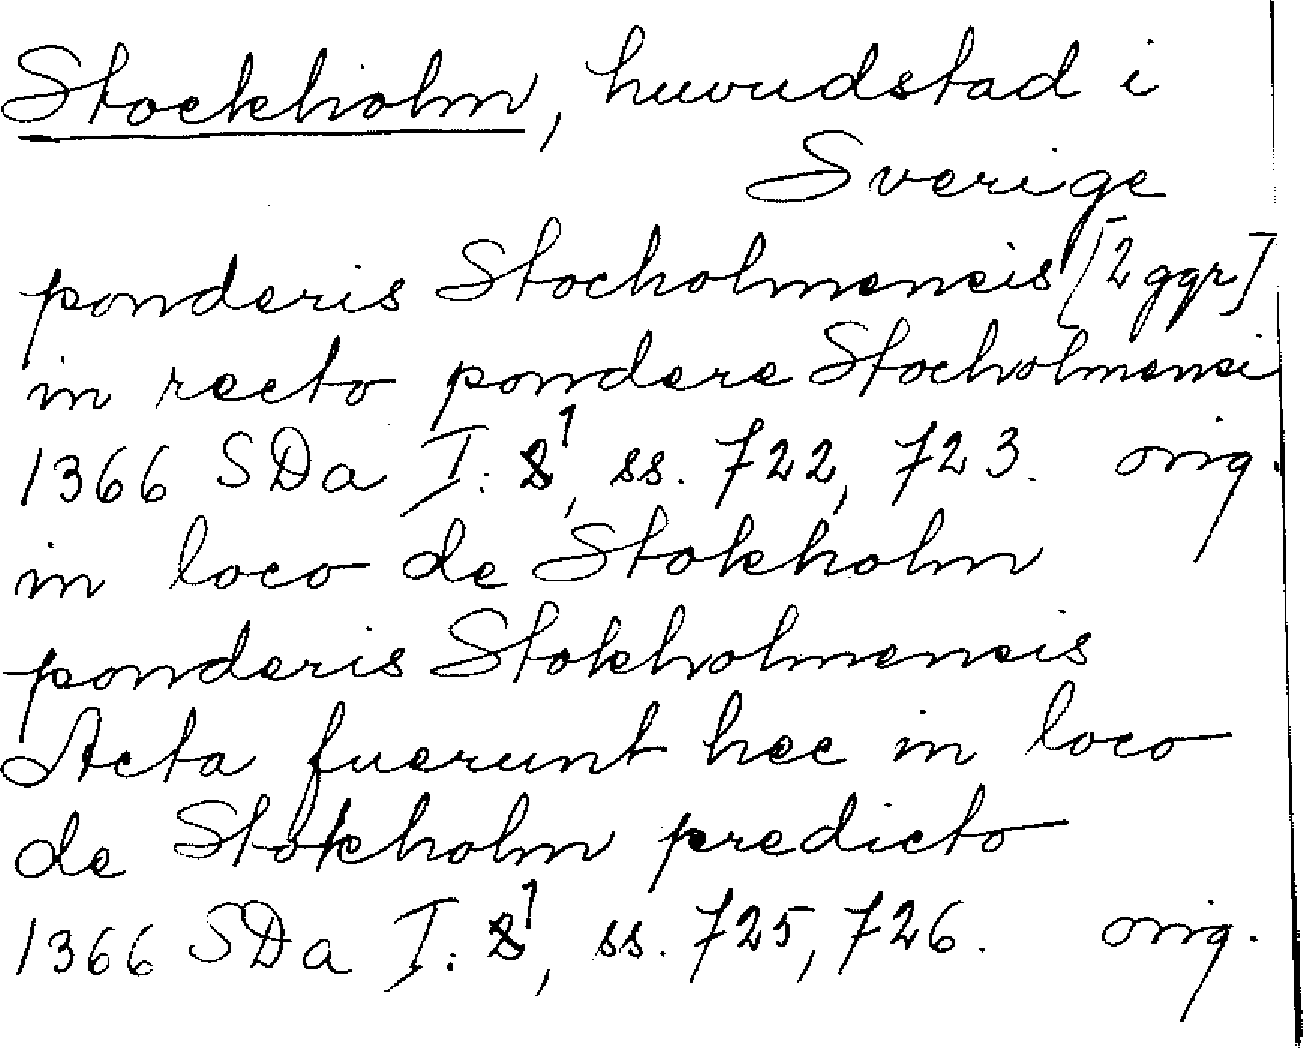 Stockholm, huvudstad i
Sverige
ponderis Stocholmensis [2 ggr]
in recto pondere Stocholmensi
1366 SDa I: 1, ss. 722, 723. orig.
in loco de Stokholm
ponderis Stokholmensis
Acta fuerunt hec in loco
de Stokholm predicto
1366 SDa I: 1, ss. 725, 726. orig.